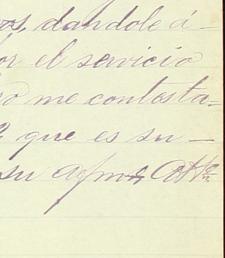 os, dandole á-
or el servicio
o me contesta-
que es su-
su afmo